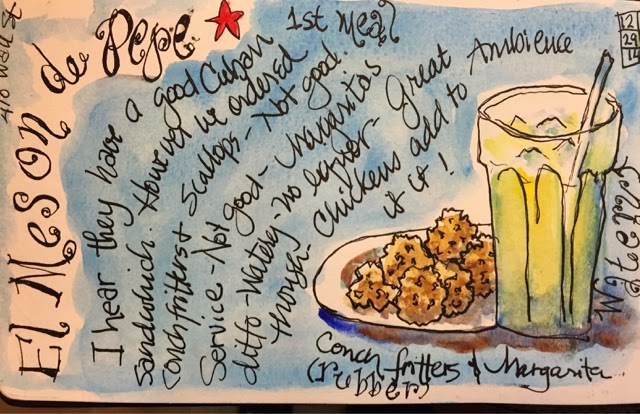 410 Wall St
El Meson de Pepe
1st meal
I hear they have a good Cuban
Sandwich. However we ordered
Conch fritters & Scallops - Not good.
Service - Not good - Margaritas
ditto - Watery - no liquor - Great Ambience
though - Chickens add to
it!
Conch fritters & Margarita
(rubber)
2
29